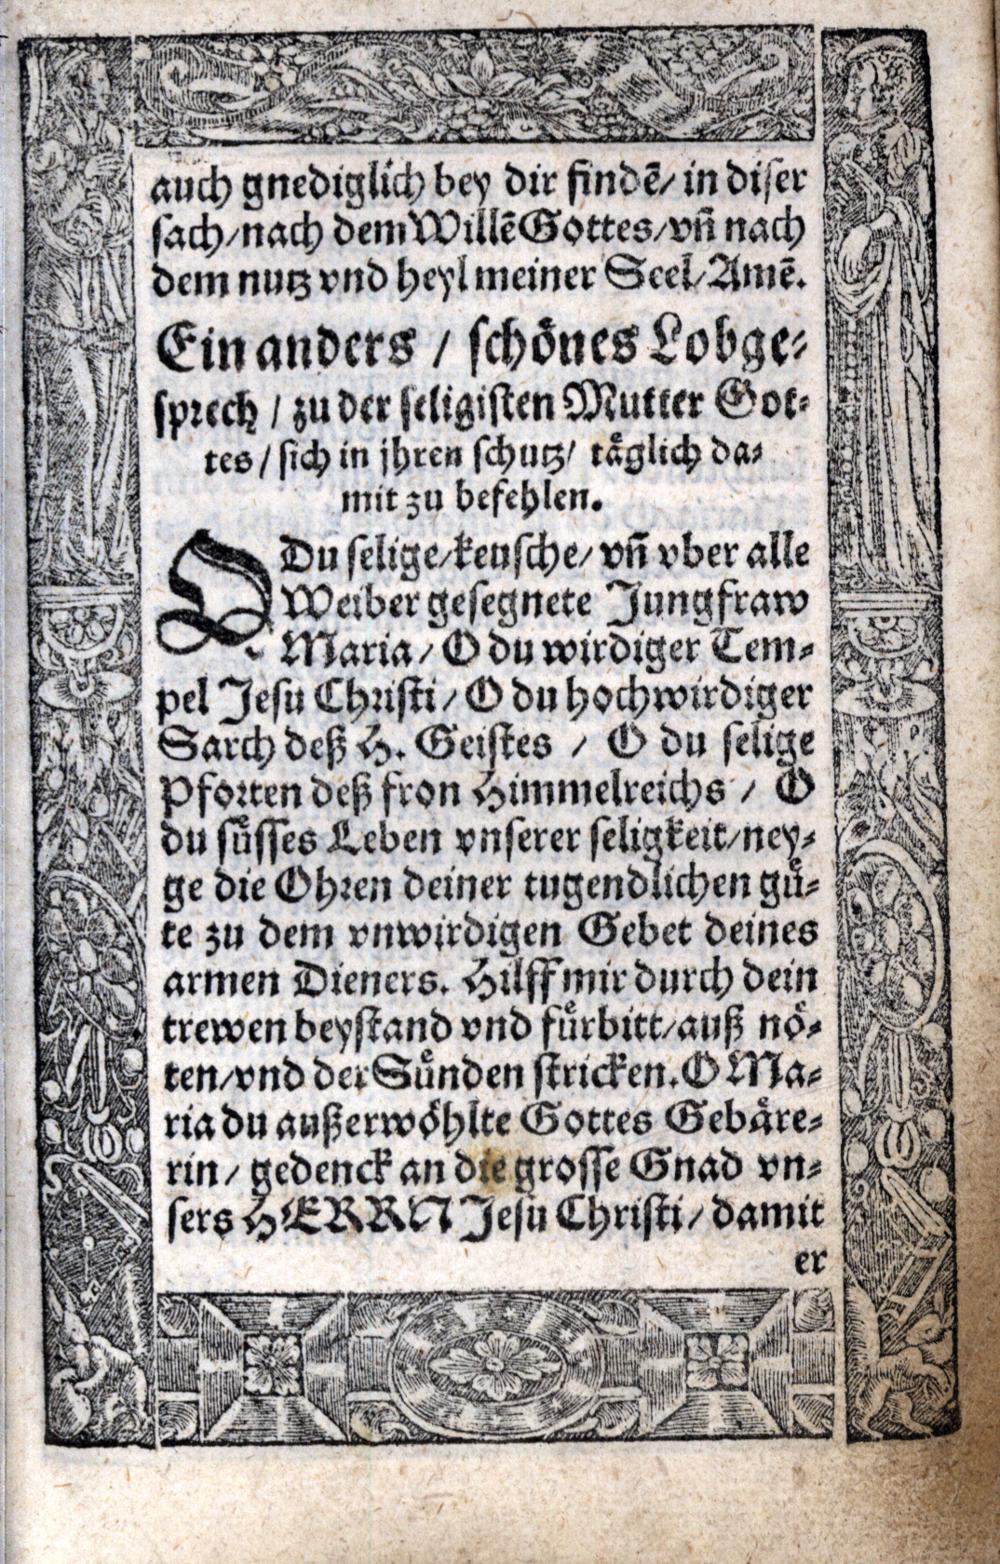 auch gnediglich bey dir findẽ/ in diser
sach/nach dem Willẽ Gottes/vñ nach
dem nutz vnd heyl meiner Seel/Amẽ.
Ein anders / schönes Lobge-
sprech / zu der seligisten Mutter Got-
tes / sich in jhren schutz/ täglich da-
mit zu befehlen.
O Du selige/keusche/ vñ vber alle
Weiber gesegnete Jungfraw
Maria/ O du wirdiger Tem-
pel Jesu Christi/ O du hochwirdiger
Sarch deß H. Geistes / O du selige
Pforten deß fron Himmelreichs / O
du süsses Leben vnserer seligkeit/ney-
ge die Ohren deiner tugendlichen gü-
te zu dem vnwirdigen Gebet deines
armen Dieners. Hilff mir durch dein
trewen beystand vnd fürbitt/auß nö-
ten/vnd der Sünden stricken. O Ma-
ria du außerwöhlte Gottes Gebäre-
rin/ gedenck an die grosse Gnad vn-
sers HERRN Jesu Christi/ damit
er